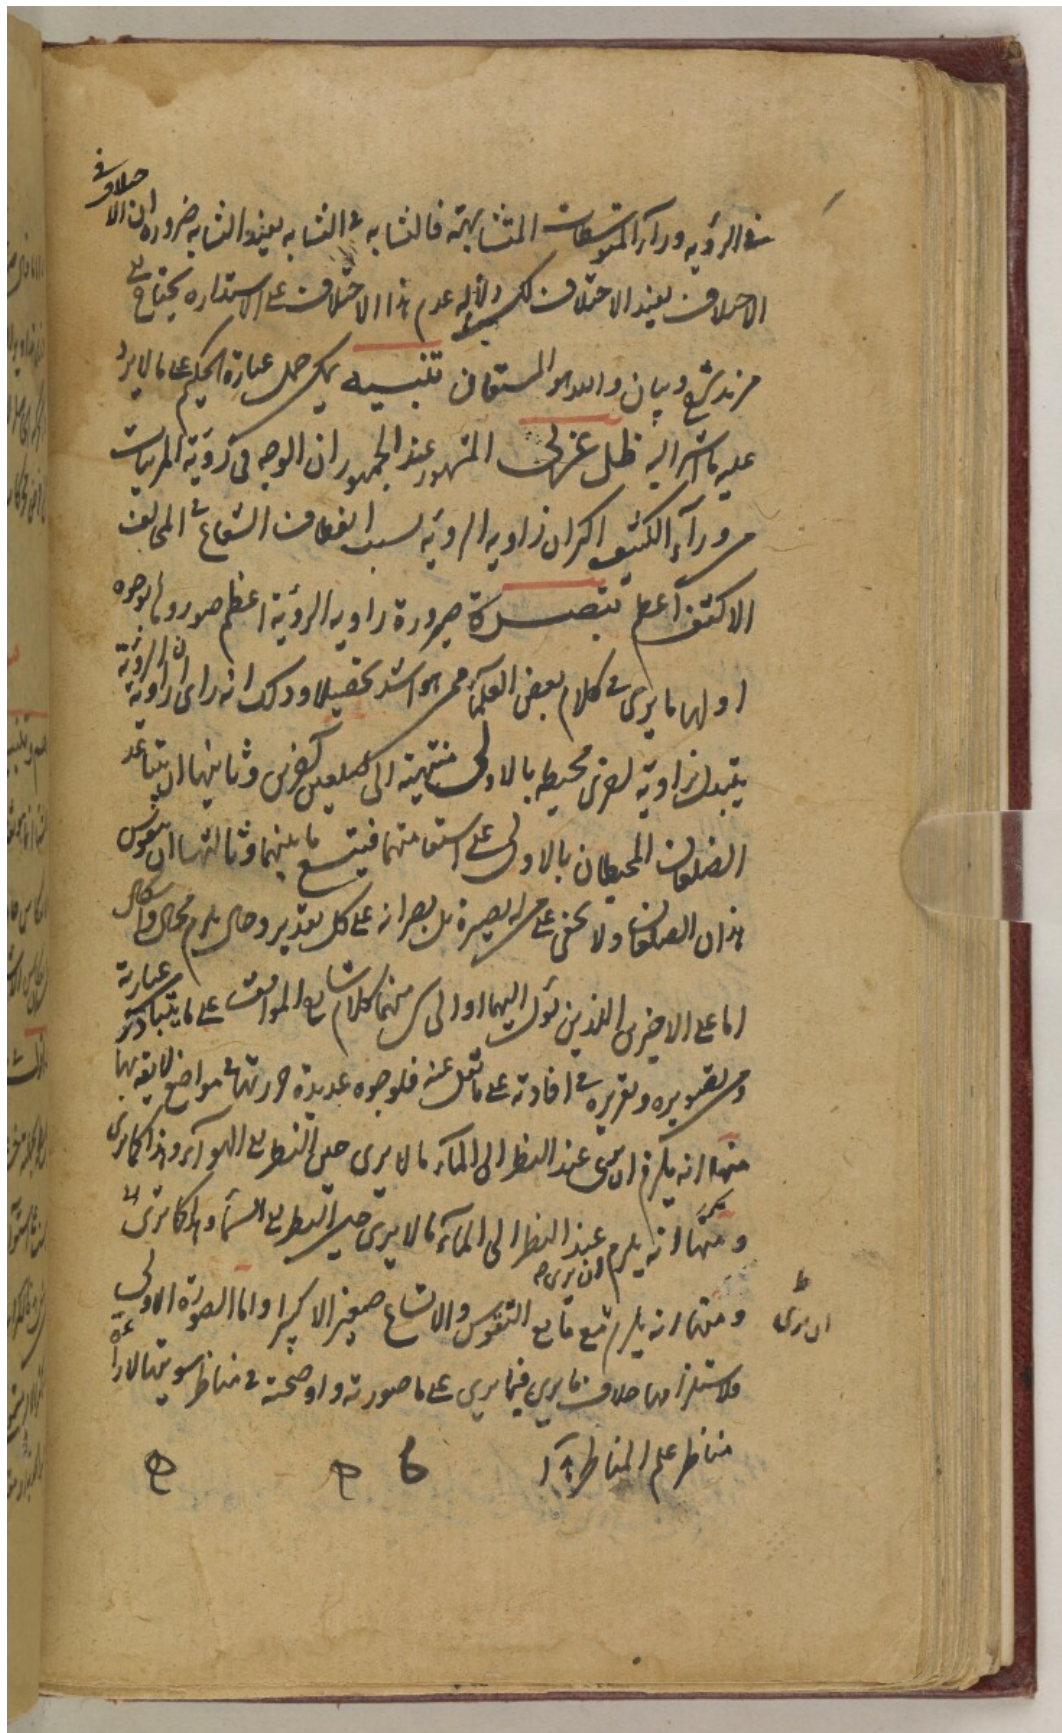 في الرؤية ورآء المتوسطات المتشابهة فالتشابه في التشابه يفيد التشابه ضرورة ان الاختلاف في
الاختلاف يفيد الاختلاف لكن دلالة عدم هذا الاختلاف على الاستدارة يحتاج الى
مزيد شرح وبيان والله المستعان تنبيه يمكن حمل عبارة الحكيم على ما لا يرد
عليه ما اشير اليه ظل عرلى المشهور عند الجمهور ان الوجه في رؤية المرئيات
من ورآء الكثيف اكبر ان زاوية الرؤية بسبب انعطاف الشعاع في المخالف
الاكثف اعظم تبصرة صيرورة زاوية الرؤية اعظم بوجوه
اولها ما يرى في كلام بعض العلمآء ممن هو اشد تحصيلا وذلك انه راى ان زاوية الرؤية
يتبدل بزاوية اخرى محيطة بالاولى منتهية الى ضلعين وثانيها ان يتباعد
الضلعان المحيطان بالاولى على استقامتهما فيتسع ما بينهما وثالثها ان يتقوس
هذان الضلعان ولا يخفى على من له بصيرة بل بصر انه على كل تقدير وحال يلزم محال واشكال
اما على الاخيرين اللذين يؤل اليهما او الى منهما كلام شارح المواقف على ما يتبادر عبارته
ومن تصويره وتقريره في افادته على ما نقل عنه فلوجوه عديدة حررتها في مواضع لائقة بها
منها انه يلزم ان يرى عند النظر الى المآء ما لا يرى حين النظر الى الهوآء وهذا كما ترى
ومنها انه يلزم ان يرى عند النظر الى المآء ما لا يرى حين النظر الى السمآء وهذا كما ترى
ومنها انه يلزم مع التقوس والاتساع صغر الاكبر واما الصورة الاولى
فلاستلزامها خلاف ما يرى فيما يرى على ما صورته واوضحته في مناظر سويتها لارآءة
مناظر علم المناظر
ان يرى